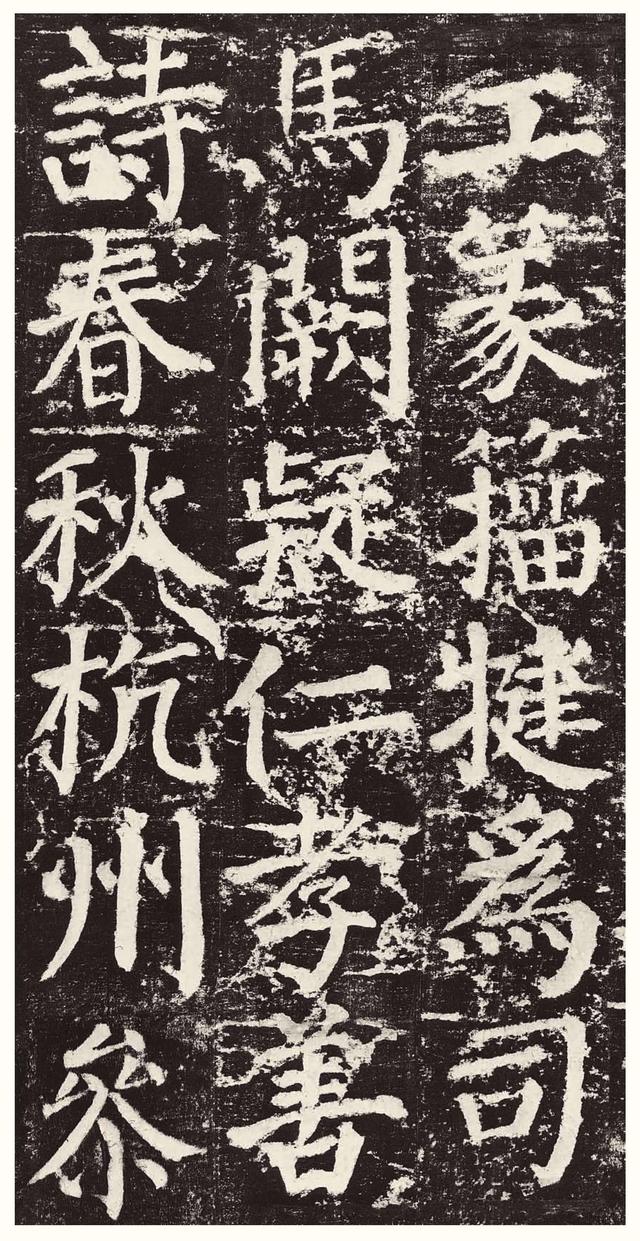 工篆籕犍爲司
馬闕疑仁孝善
詩春秋杭州參